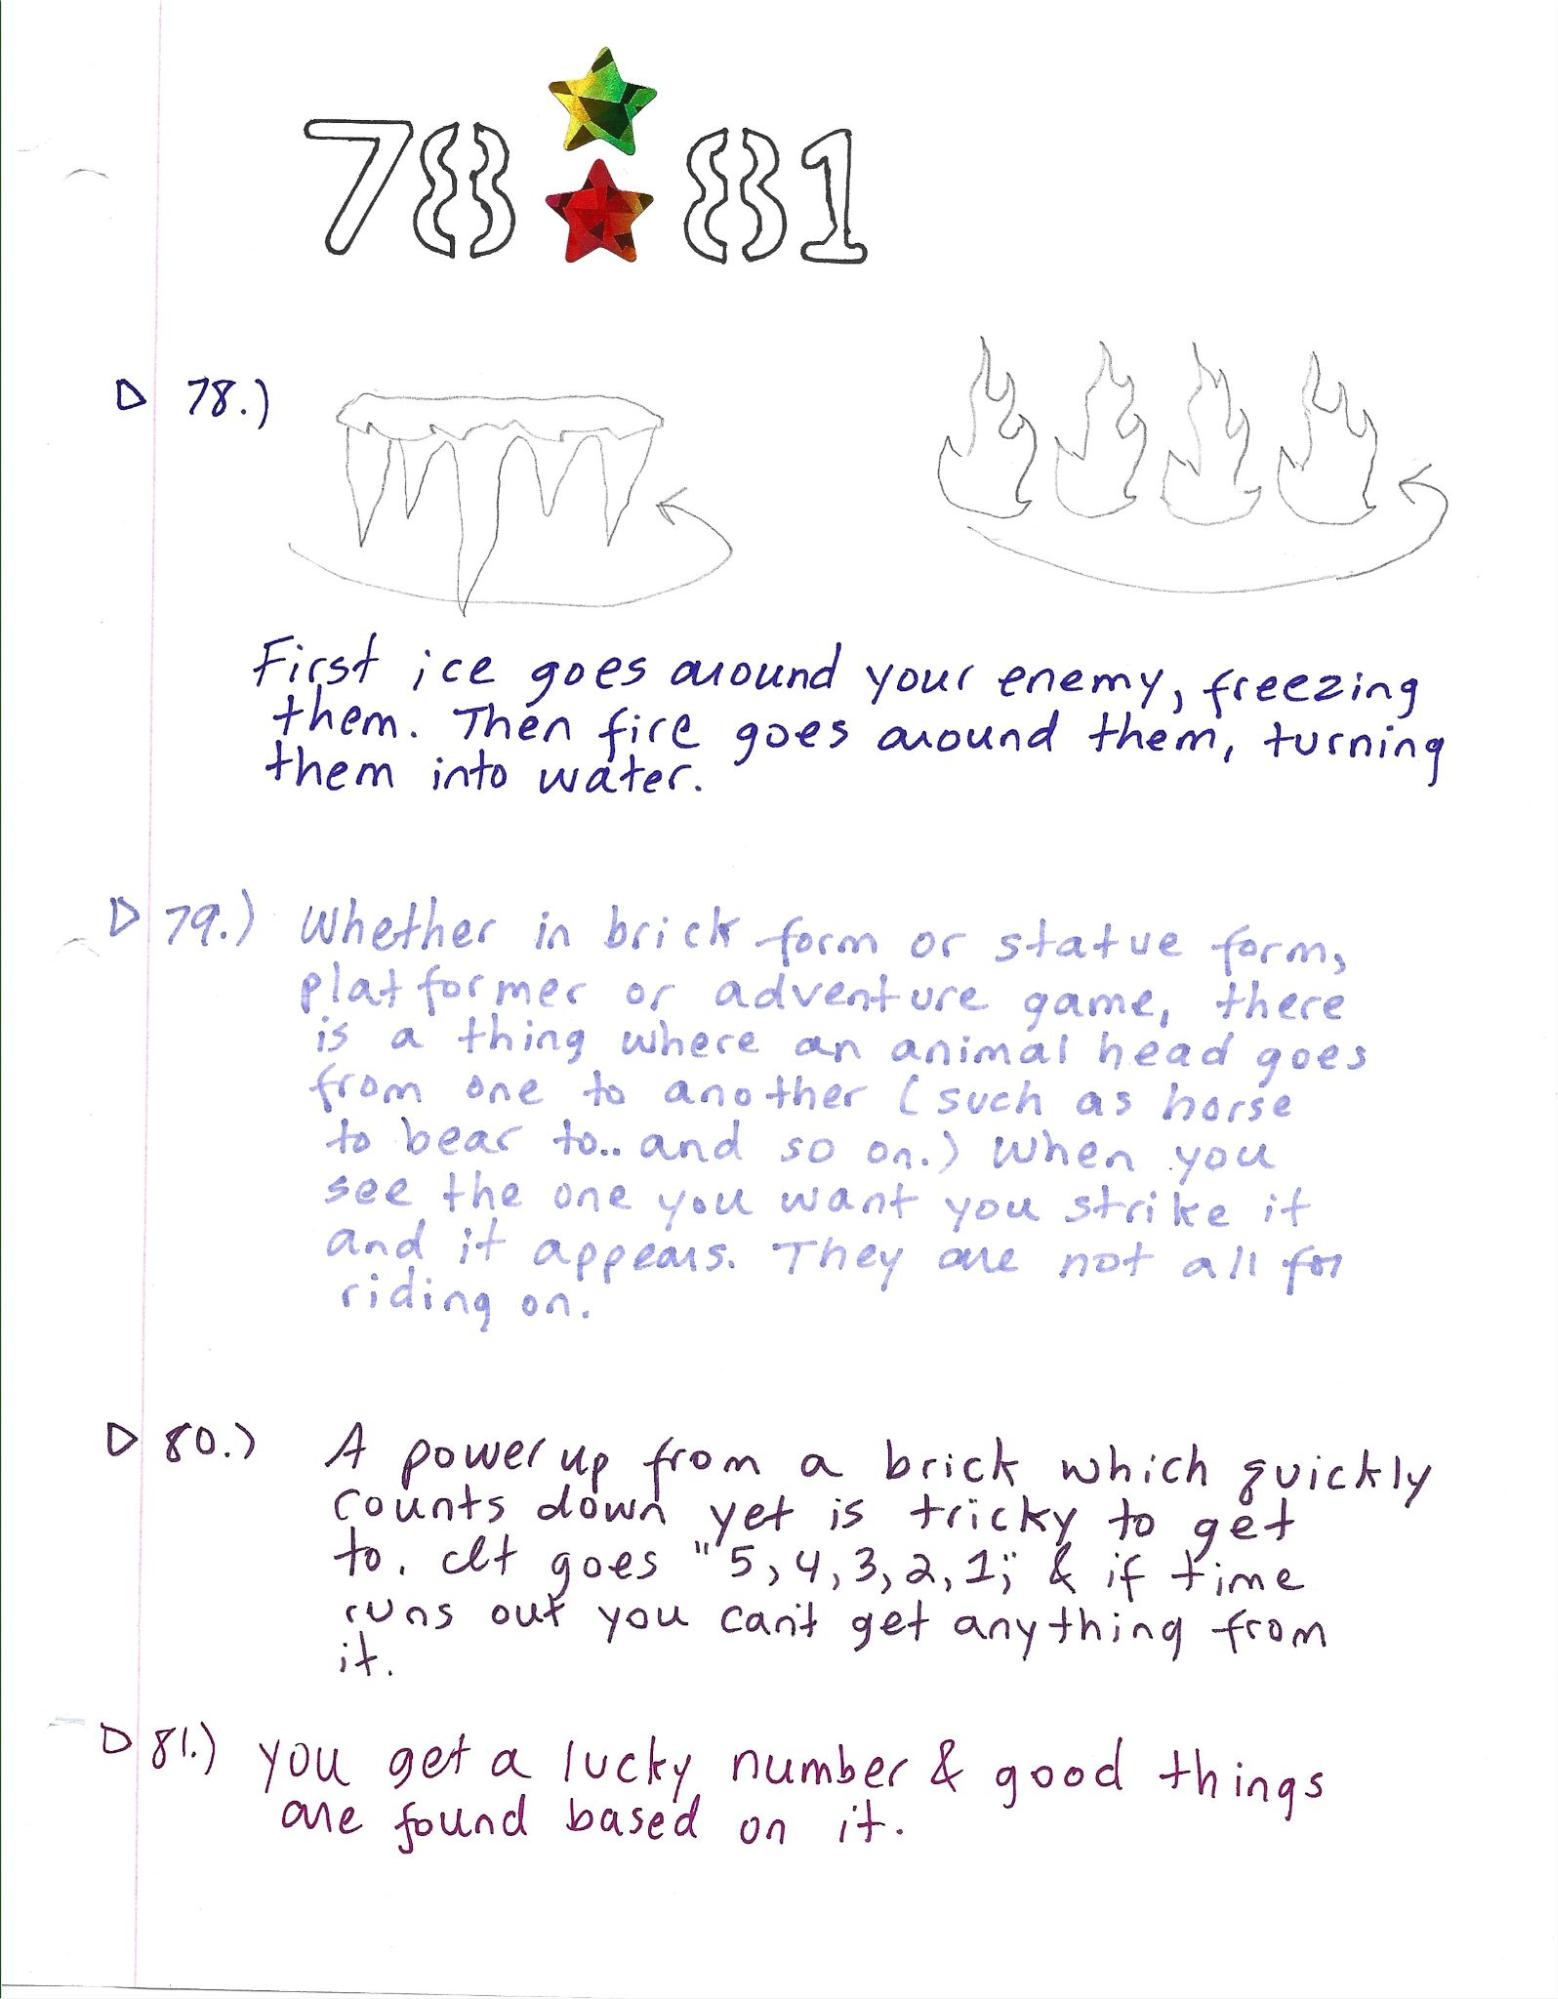 78 81
78.)
First ice goes around your enemy, freezing
them. Then fire goes around them, turning
them into water.
79.) Whether in brick form or statue form,
platformer or adventure game, there
is a thing where an animal head goes
from one to another (such as horse
to bear to.. and so on.) When you
see the one you want you strike it
and it appears. They are not all for
riding on.
80.) A power up from a brick which quickly
counts down yet is tricky to get
to. It goes "5, 4, 3, 2, 1," & if time
runs out you can't get anything from
it.
81.) you get a lucky number & good things
are found based on it.